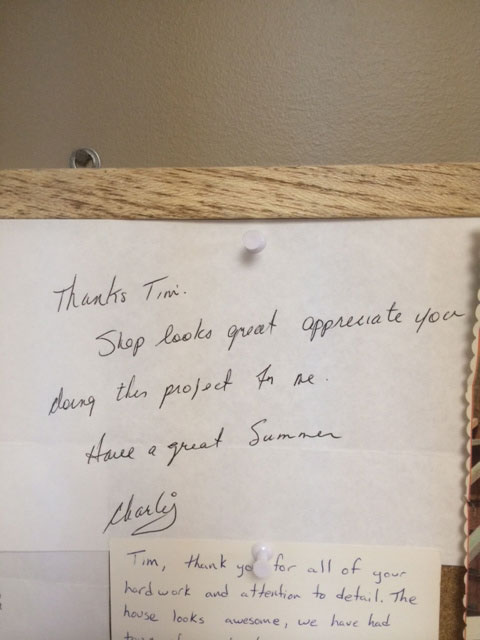 Thanks Tim.
Shop looks great appreciate you
doing this project for me.
Have a great Summer
Charlie
Tim, thank you for all of your
hard work and attention to detail. The
house looks awesome, we have had